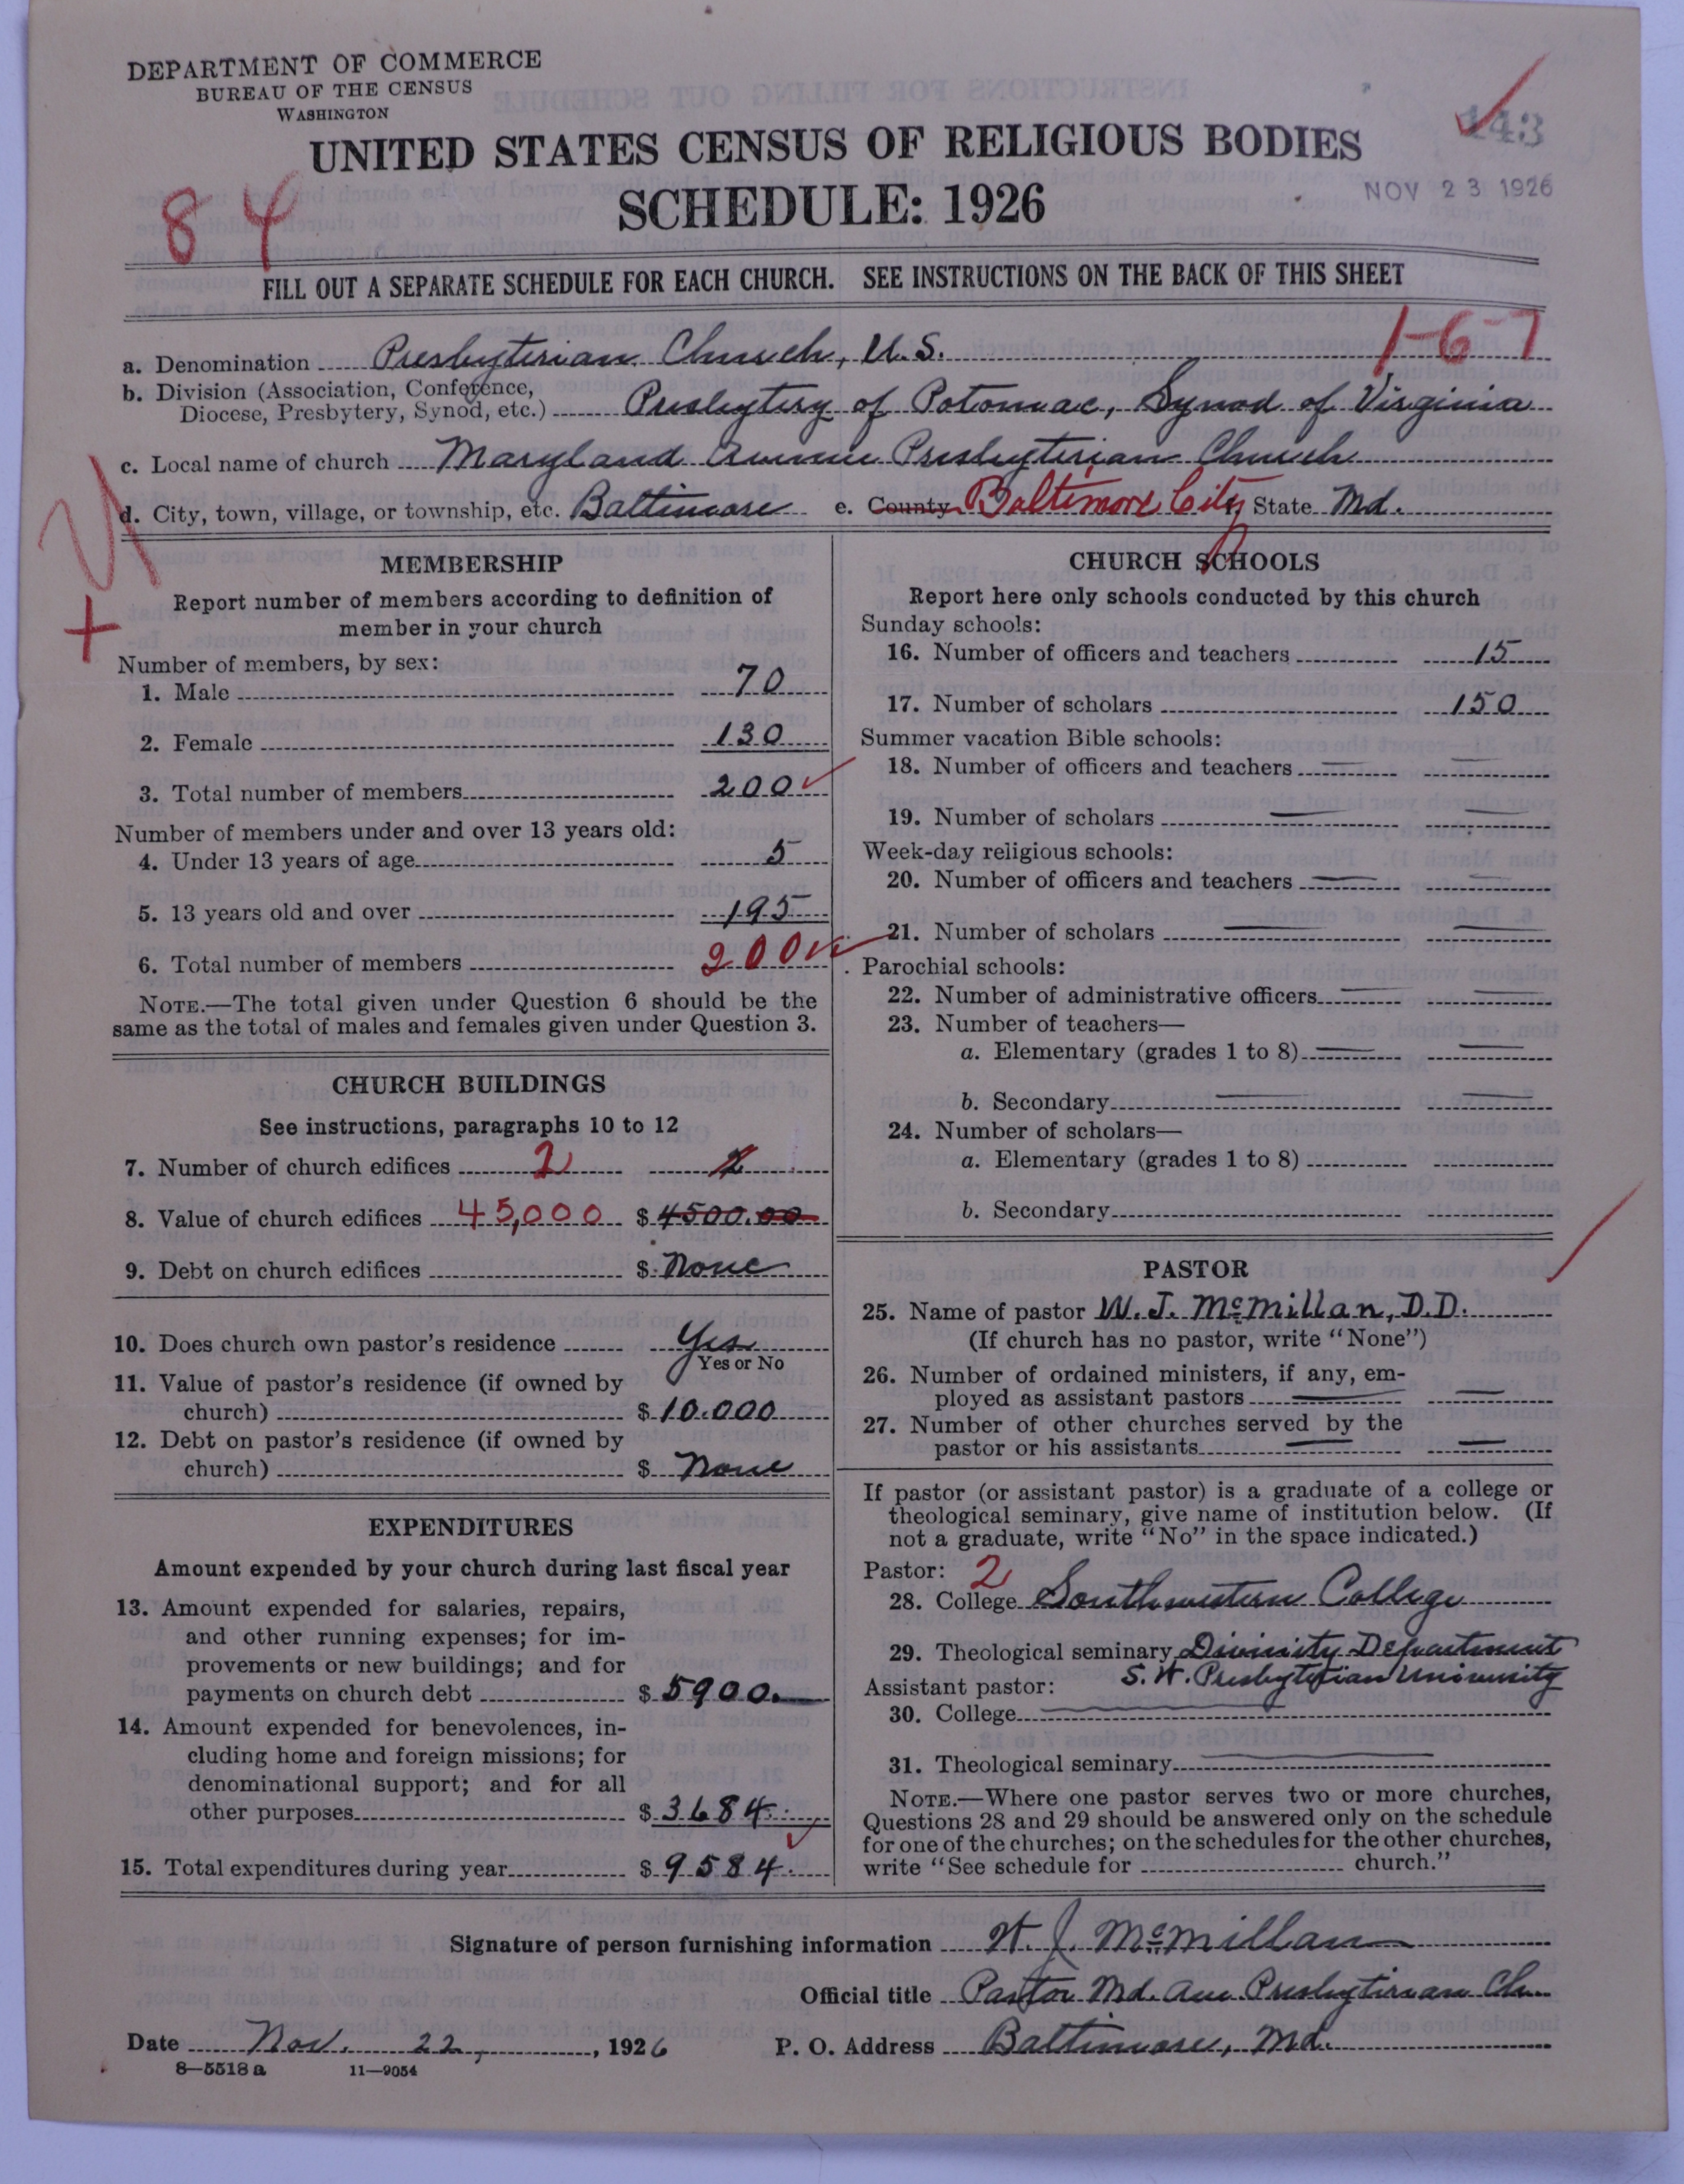 DEPARTMENT OF COMMERCE
BUREAU OF THE CENSUS
WASHINGTON
UNITED STATES CENSUS OF RELIGIOUS BODIES
SCHEDULE: 1926
143
NOV 23 1926
84
FILL OUT A SEPARATE SCHEDULE FOR EACH CHURCH. SEE INSTRUCTIONS ON THE BACK OF THIS SHEET
1-6-7
a. Denomination Presbyterian Church, U.S.
b. Division (Association, Conference,
Diocese, Presbytery, Synod, etc.) Presbytery of Potomac, Synod of Virginia
c. Local name of church Maryland Avenue Presbyterian Church
d. City, town, village, or township, etc. Baltimore e. County Baltimore City State Md.
MEMBERSHIP
Report number of members according to definition of
member in your church
Number of members, by sex:
1. Male 70
2. Female 130
3. Total number of members 200
Number of members under and over 13 years old:
4. Under 13 years of age 5
5. 13 years old and over 195
6. Total number of members 200
NOTE.—The total given under Question 6 should be the
same as the total of males and females given under Question 3.
CHURCH BUILDINGS
See instructions, paragraphs 10 to 12
7. Number of church edifices 2
8. Value of church edifices 45,000 $ 4500.00
9. Debt on church edifices $ None
10. Does church own pastor's residence Yes
Yes or No
11. Value of pastor's residence (if owned by
church) $ 10.000
12. Debt on pastor's residence (if owned by
church) $ None
EXPENDITURES
Amount expended by your church during last fiscal year
13. Amount expended for salaries, repairs,
and other running expenses; for im-
provements or new buildings; and for
payments on church debt $ 5900.
14. Amount expended for benevolences, in-
cluding home and foreign missions; for
denominational support; and for all
other purposes $ 3684.
15. Total expenditures during year $ 9584.
CHURCH SCHOOLS
Report here only schools conducted by this church
Sunday schools:
16. Number of officers and teachers 15
17. Number of scholars 150
Summer vacation Bible schools:
18. Number of officers and teachers
19. Number of scholars
Week-day religious schools:
20. Number of officers and teachers
21. Number of scholars
Parochial schools:
22. Number of administrative officers
23. Number of teachers—
a. Elementary (grades 1 to 8)
b. Secondary
24. Number of scholars—
a. Elementary (grades 1 to 8)
b. Secondary
PASTOR
25. Name of pastor W. J. McMillan, D.D.
(If church has no pastor, write "None")
26. Number of ordained ministers, if any, em-
ployed as assistant pastors
27. Number of other churches served by the
pastor or his assistants
If pastor (or assistant pastor) is a graduate of a college or
theological seminary, give name of institution below. (If
not a graduate, write "No" in the space indicated.)
Pastor: 2
28. College Southwestern College
29. Theological seminary Divinity Department
S. W. Presbyterian University
Assistant pastor:
30. College
31. Theological seminary
NOTE.—Where one pastor serves two or more churches,
Questions 28 and 29 should be answered only on the schedule
for one of the churches; on the schedules for the other churches,
write "See schedule for church."
Signature of person furnishing information W. J. McMillan
Official title Pastor Md. Ave Presbyterian Ch.
Date Nov. 22, 1926 P. O. Address Baltimore, Md.
8—5518 a 11—9054